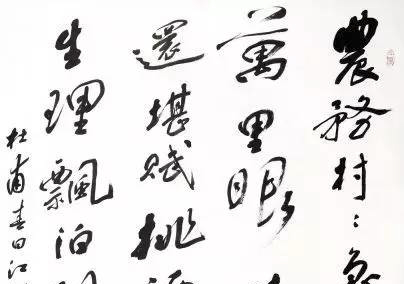 農務村〻
萬里眼
還堪賦桃
生理飄泊
杜甫春日江